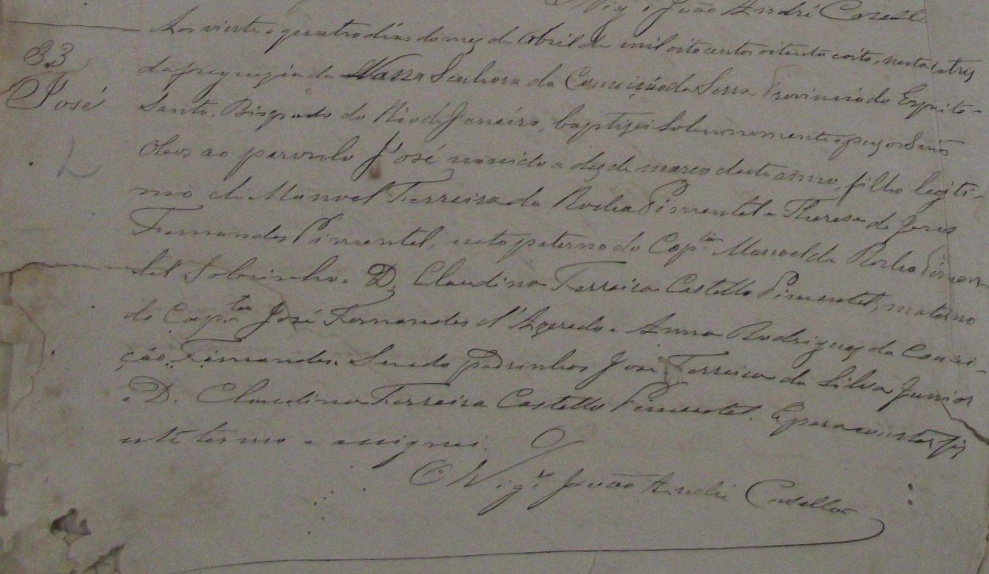 Vigº João André Casella
Aos vinte e quatro dias do mez de Abril de mil oito centos oitenta e oito, nesta Matriz
da freguezia de Nossa Senhora da Conceição da Serra Provincia do Espirito-
Santo, Bispado do Rio de Janeiro, baptizei solemnemente e puz os Santos
83
José
Oleos ao parvulo José nascido a dez de março deste anno, filho legiti-
mo de Manoel Ferreira da Rocha Pimentel e Theresa de Jesus
Fernandes Pimentel, neto paterno do Cap.tam Manoel da Rocha Pimen-
tel Sobrinho e D. Claudina Ferreira Castello Pimentel, materno
do Cap.tam José Fernandes d'Azeredo e Anna Rodrigues da Concei-
ção Fernandes. Sendo padrinhos José Ferreira da Silva Junior
e D. Claudina Ferreira Castello Pimentel. E para constar fiz
este termo e assignei.
O Vigº João André Casella